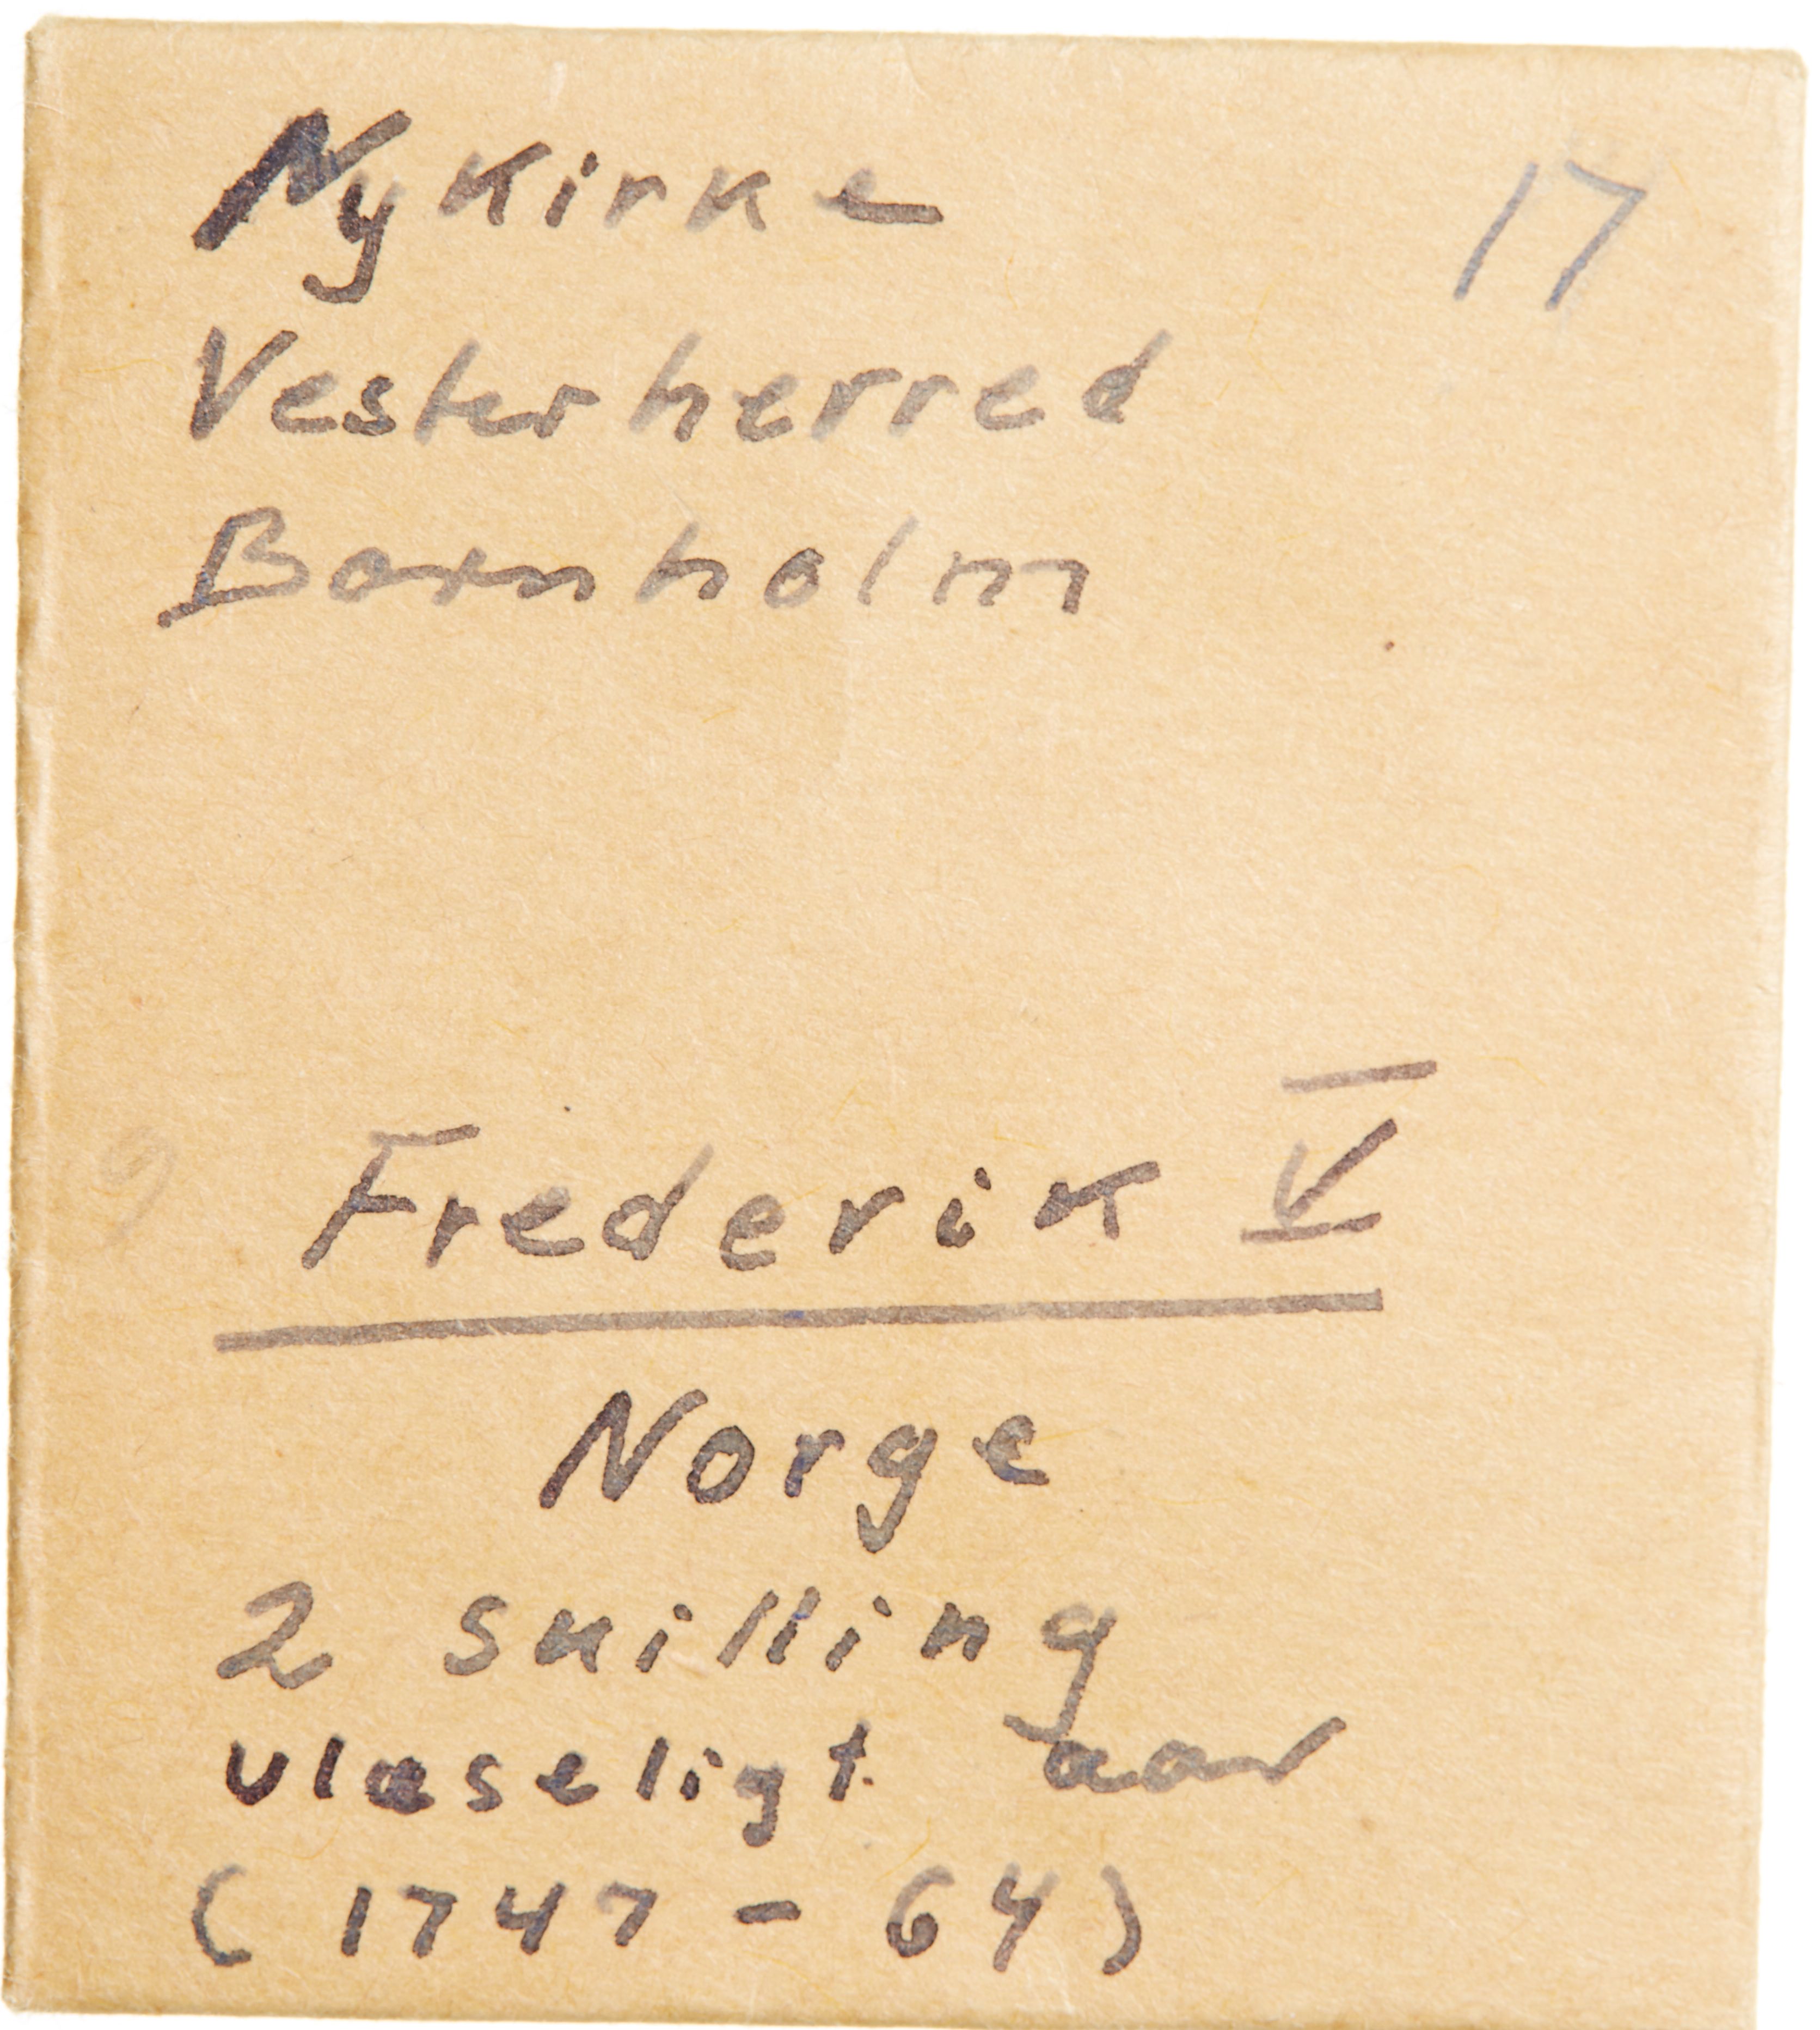 Nykirke 17
Vesterherred
Bornholm
Frederik V
Norge
2 skilling
ulæseligt aar
(1747-64)